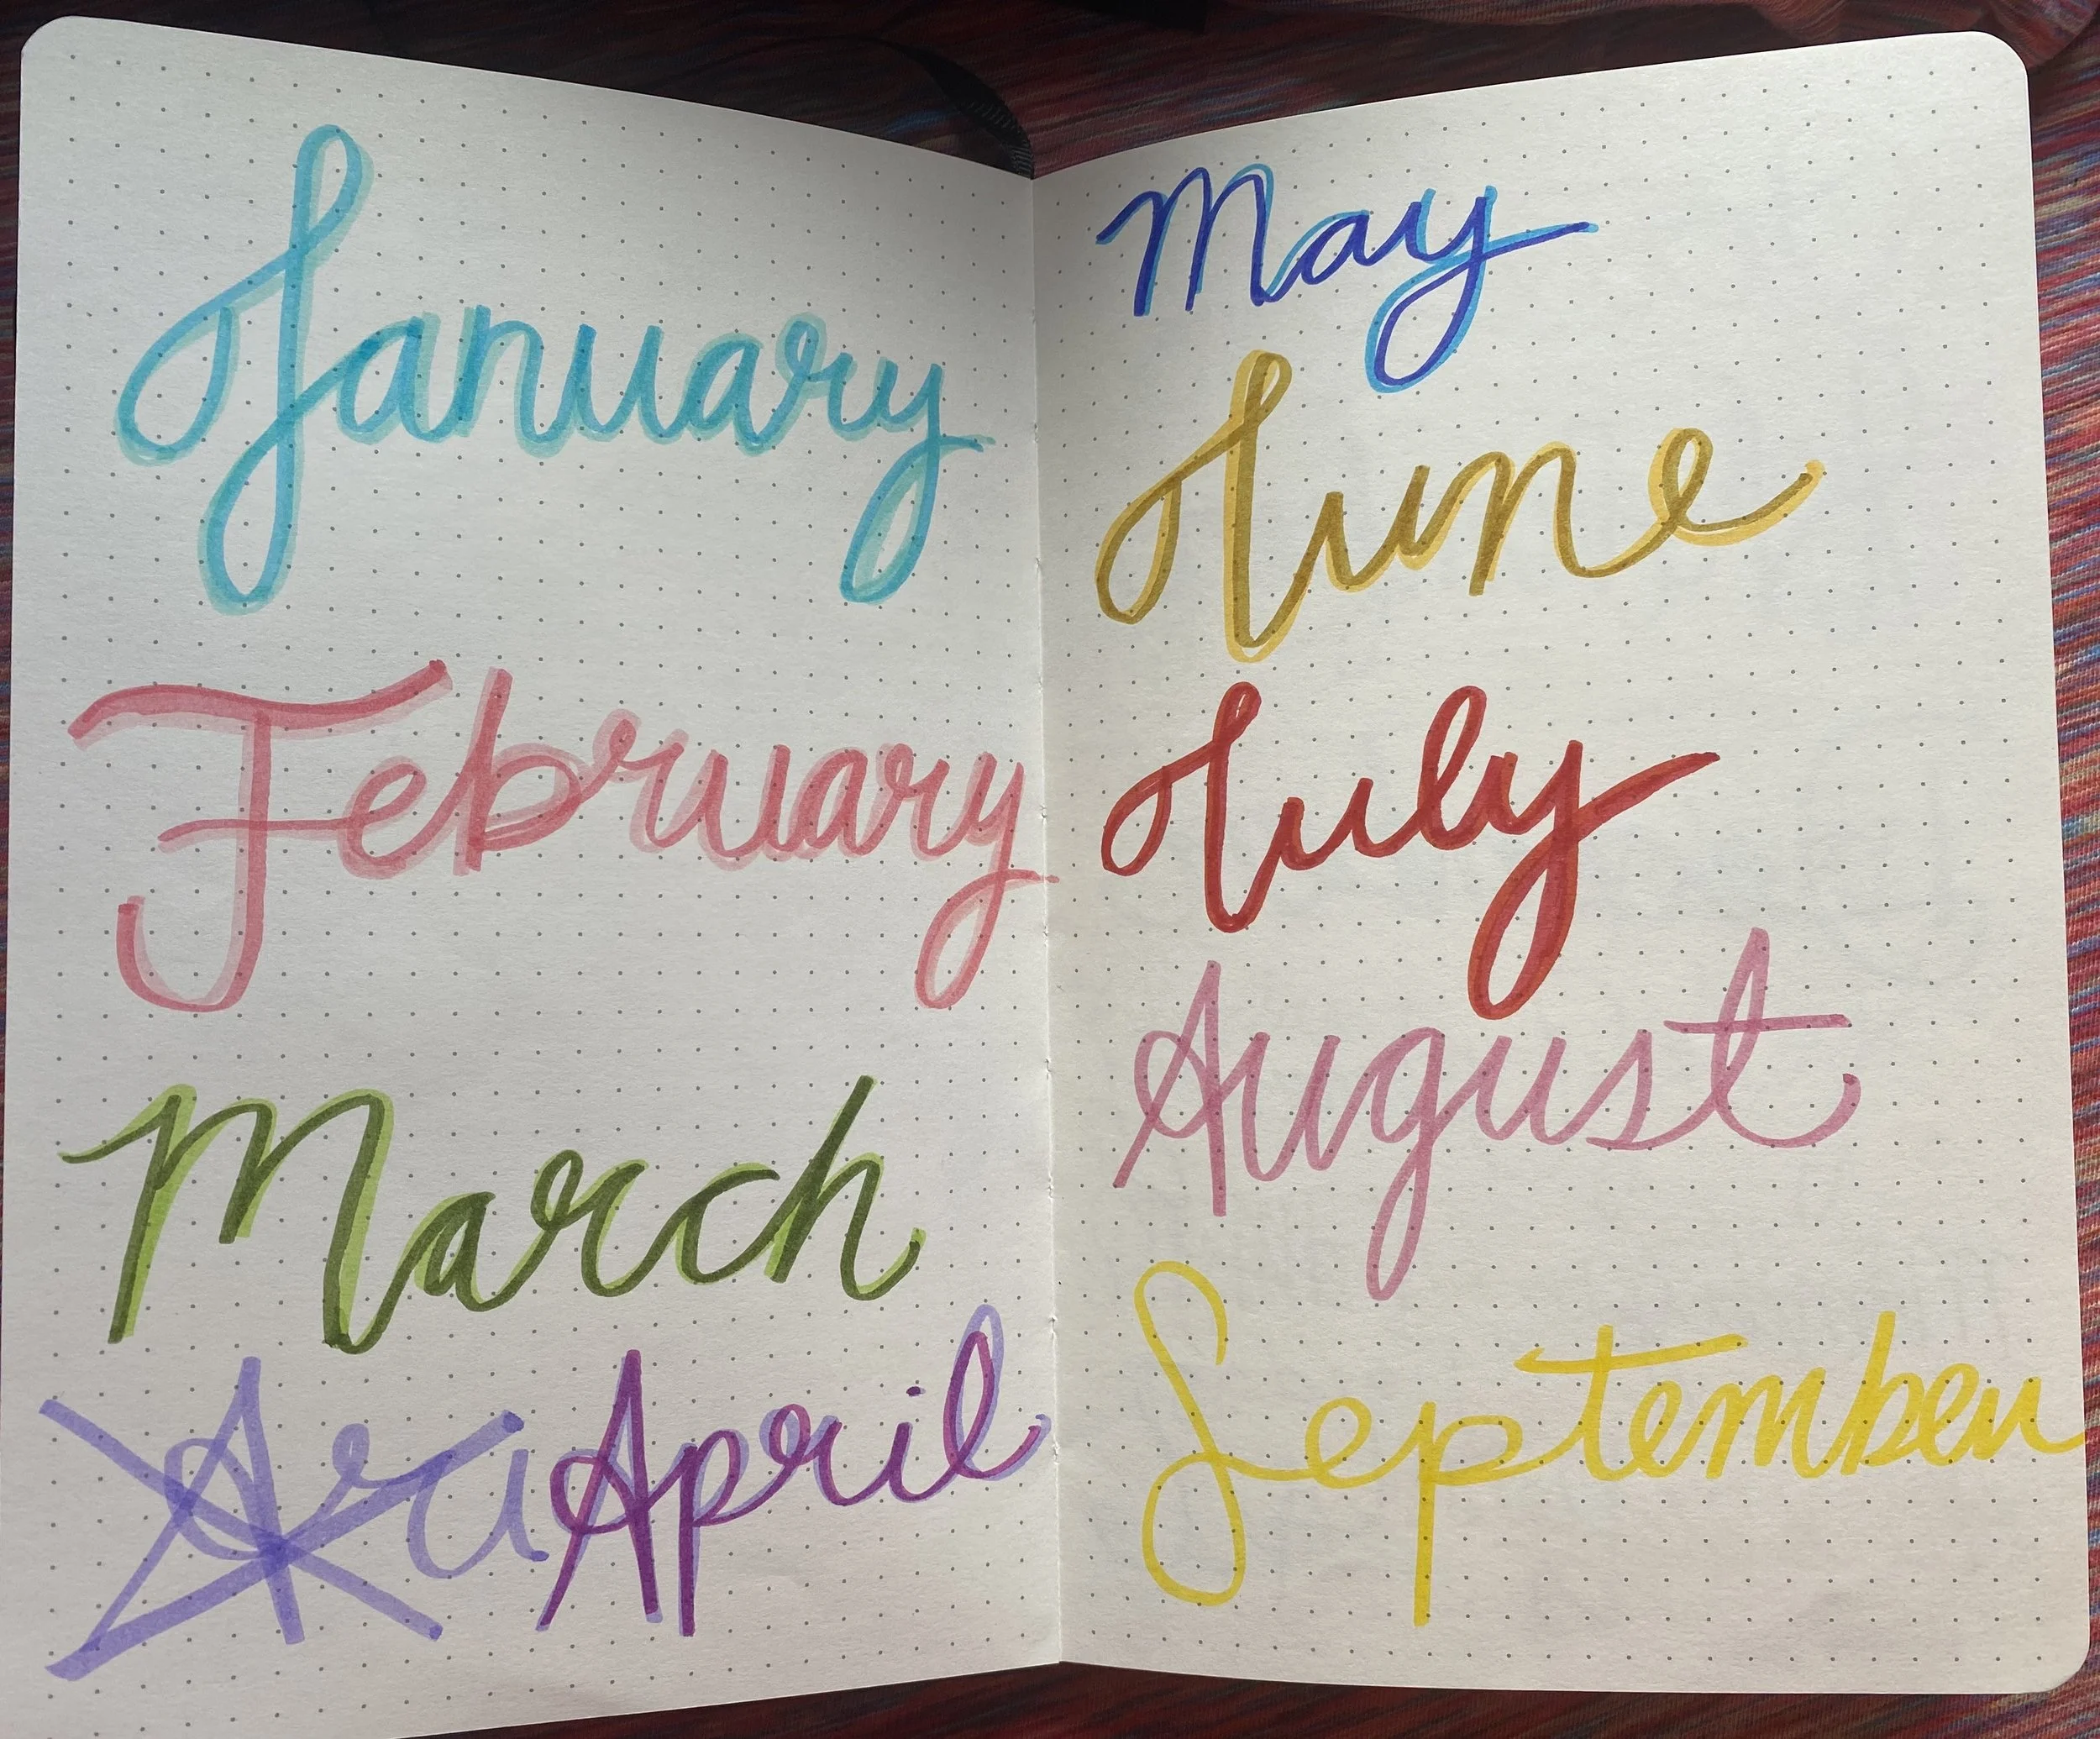 January
February
March
Ari April
May
June
July
August
September